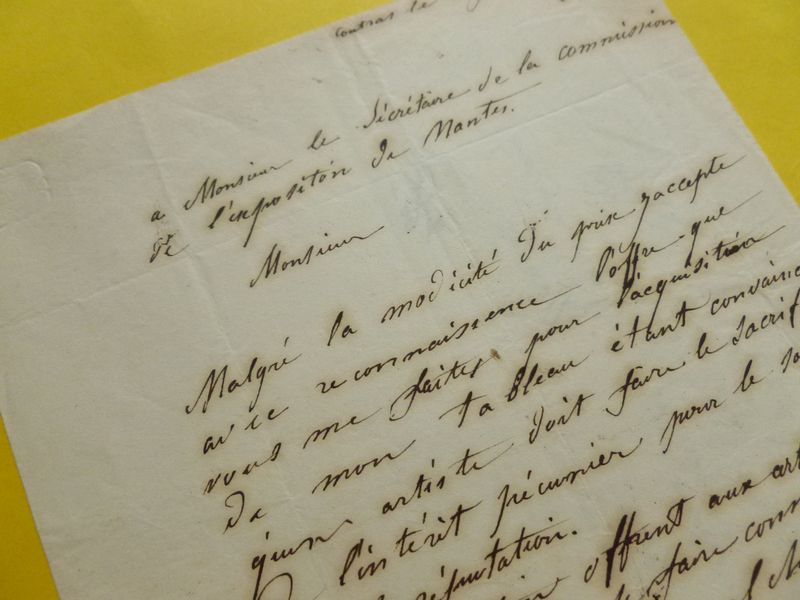 contras le
a Monsieur le Sécrétaire de la commission
de l'expositón de Nantes.
Monsieur
Malgré la modicité du prix j'accepte
avec reconnaissence l'offre que
vous me faites pour l'acquisitión
de mon tableau étant convainc
qu'un artiste doit faire le sacrif
l'intérêt pécunier pour le
réputation.
offrent aux art
faire conn